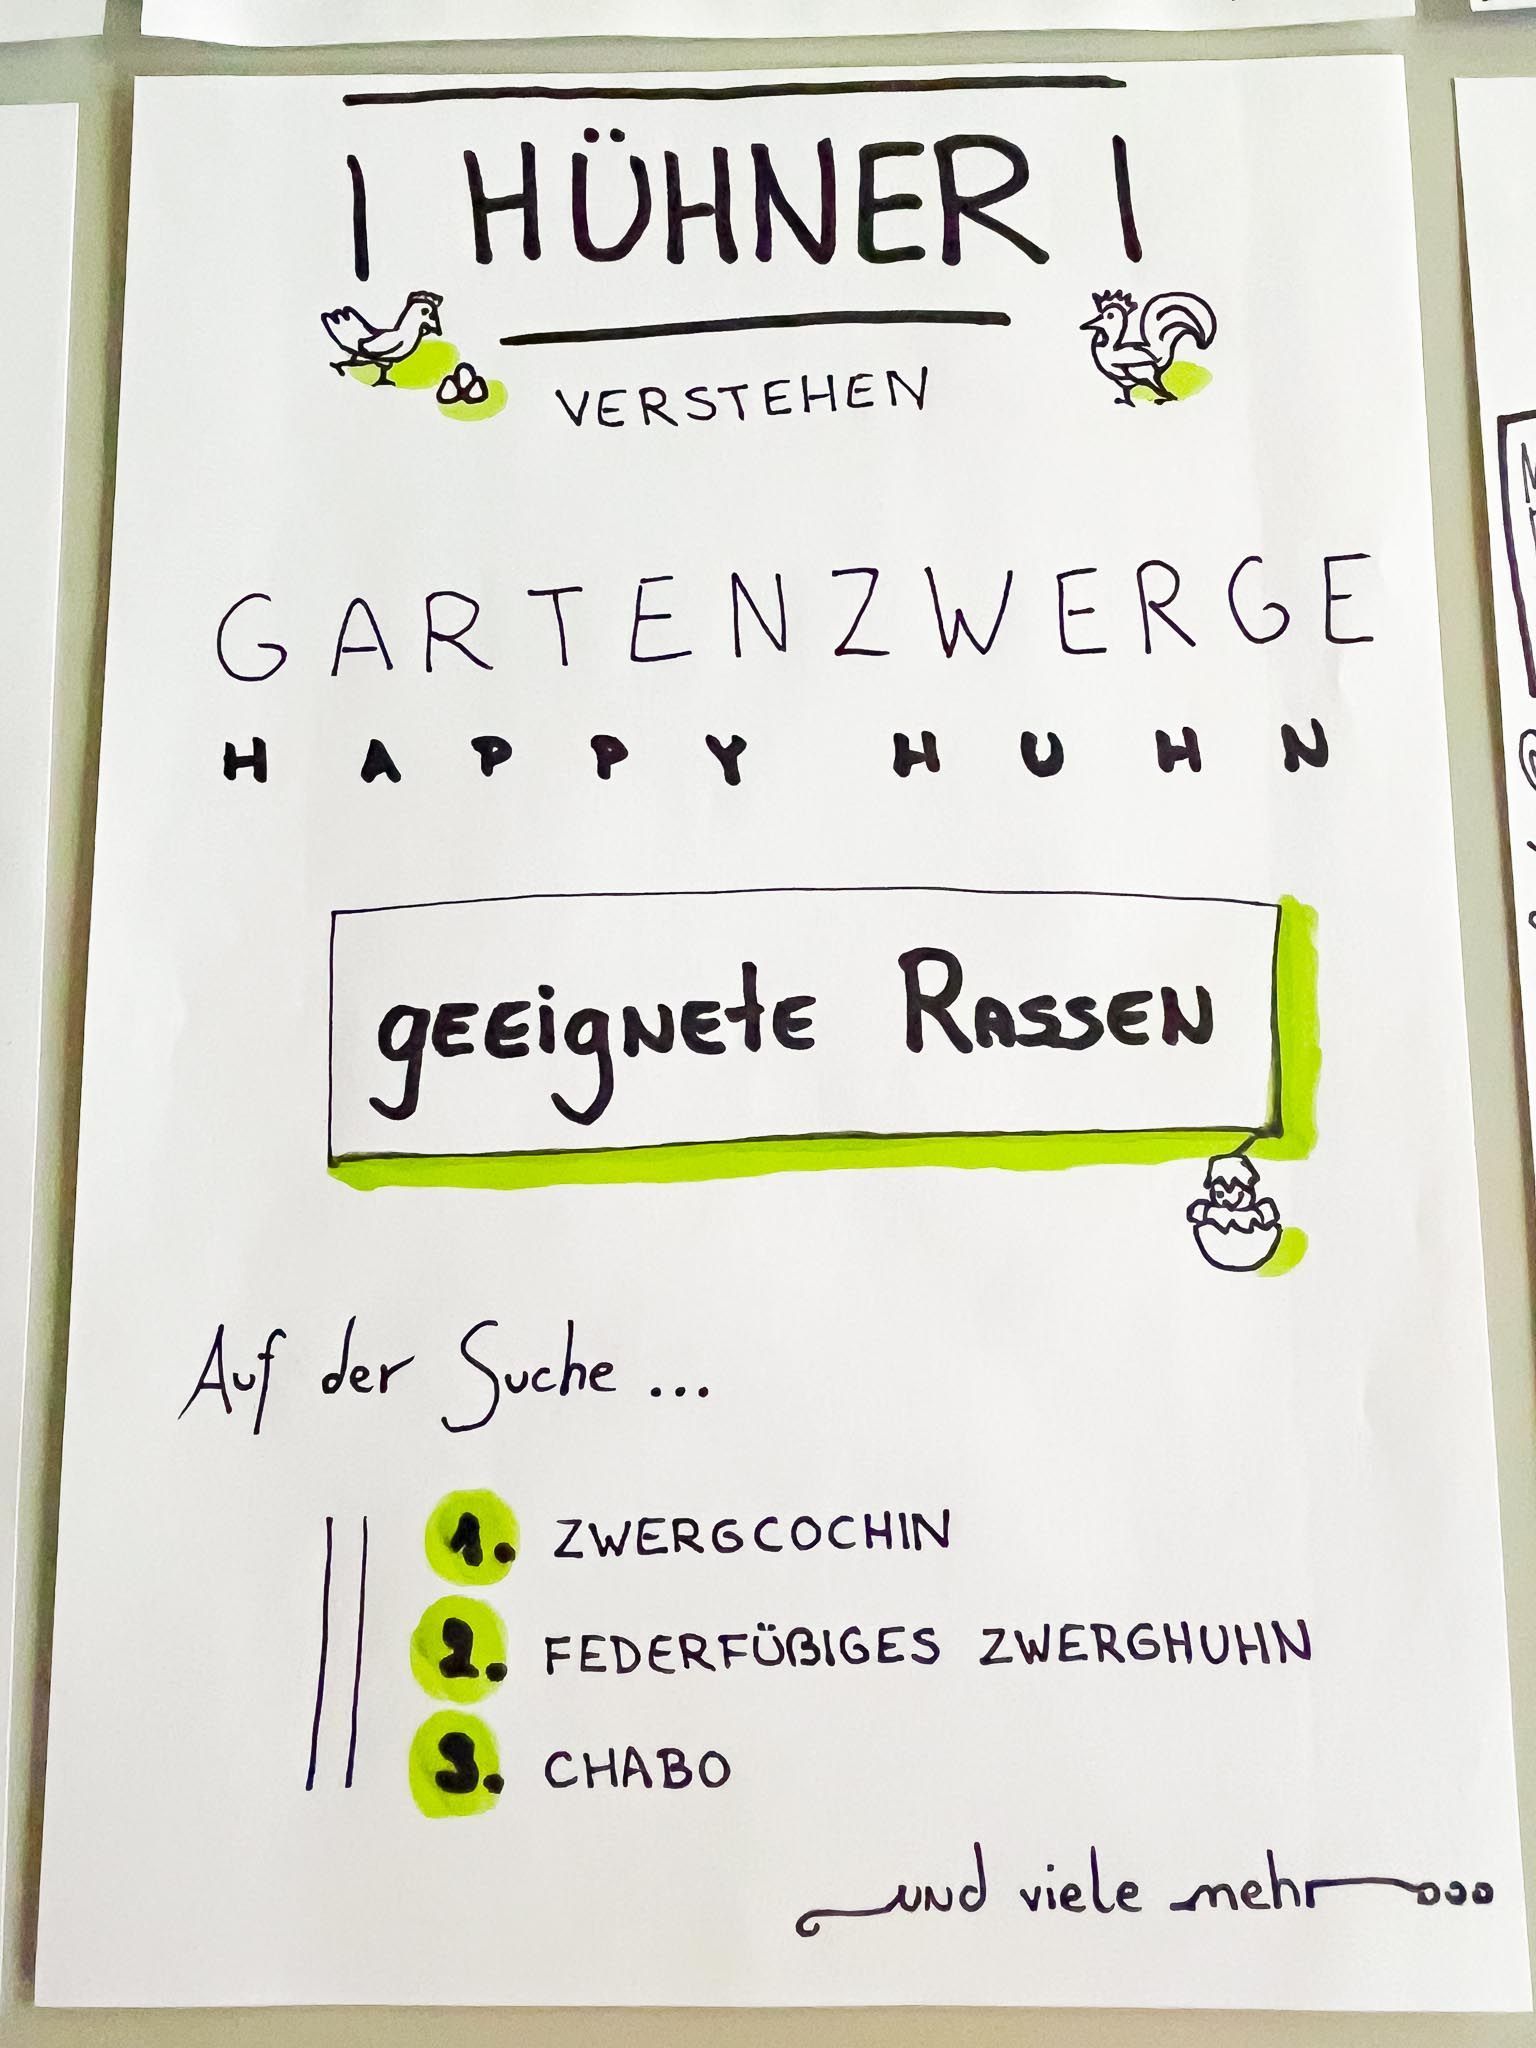 | HÜHNER |
VERSTEHEN
GARTENZWERGE
HAPPY HUHN
geeignete Rassen
Auf der Suche ...
1. ZWERGCOCHIN
2. FEDERFÜßIGES ZWERGHUHN
3. CHABO
und viele mehr ...